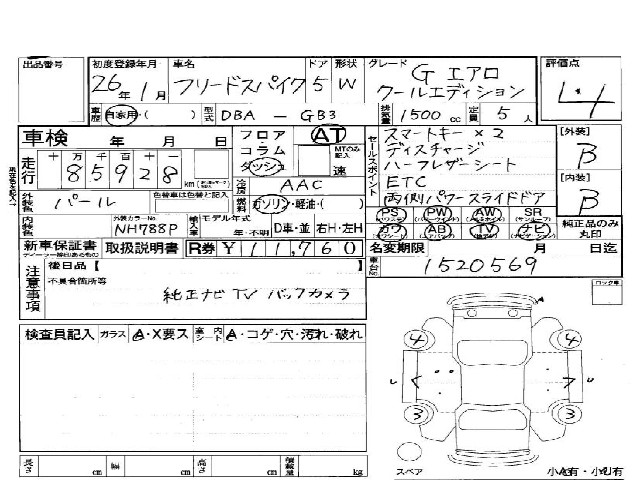 出品番号 初度登録年月 車名 ドア 形状 グレード 評価点
26年 1月 フリードスパイク 5 W G エアロ クールエディション 4
車歴 自家用・( ) 型式 DBA - GB3 排気量 1500 cc 定員 5 人
車検 年 月 日 フロア AT スマートキー×2 [外装]
走行 十万千百十一 コラム MTのみ記入 セールスポイント ディスチャージ B
85928 km ダッシュ 速 ハーフレザーシート
外装色 パール 色替車は色替と記入 冷房 AAC ETC [内装]
燃料 ガソリン・軽油・( ) 両側パワースライドドア B
内装色 外装カラーNo. NH788P 輸入車 モデル年式 年・不明 D車・並 右H・左H PS PW AW SR 純正品のみ丸印
カワ AB TV ナビ
新車保証書 取扱説明書 R券 ¥111,760 名変期限 月 日迄
注意事項 後日品【 】 車台No. 1520569
不具合箇所等
純正ナビ TV バックカメラ ロック車
検査員記入 ガラス A・X要ス 室内シート A・コゲ・穴・汚れ・破れ
4 4
3 3
長さ cm 幅 cm 高さ cm 積載量 kg スペア 小A有・小U有